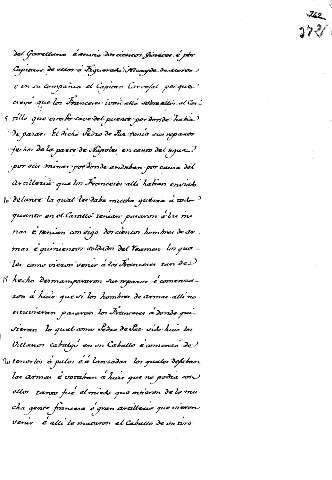 742
372
del Garellano é envio doscientos Ginetes é por
Capitan de ellos á Figueredo Alcayde de
y en su compañia el Capitan Carvajal porque
creyó que los Franceses irian alli sobre el Cas
5 tillo que estaba cave del puente por donde habia
de pasar. El dicho Pedro de Paz tenia sus reparos
fechos de la parte de Napoles en canto del agua
por sus minas por donde andaban por causa del
Artilleria que los Franceses alli habian enviado
10 delante la qual les daba mucha guerra é todo
quanto en el Castillo tenian pasaron á las mi
nas é tenian consigo doscientos hombres de ar
mas é quinientos soldados del los qua
les como vieron venir á los Franceses tan de
15 hecho desmampararon sus reparos é comenza
ron á huir que si los hombres de armas alli no
estuvieran pasaran los Franceses á donde qui
sieran lo qual como Pedro de Paz vido huir los
Villanos cabalgó en su Caballo é comenzó de
20 tenerlos á palos é á lanzadas los quales dejaban
las armas é votaban á huir que no podia con
ellos tanto fué el miedo que ovieron de la mu
cha gente francesa é gran artilleria que vieron
venir é alli le mataron el Caballo de un tiro